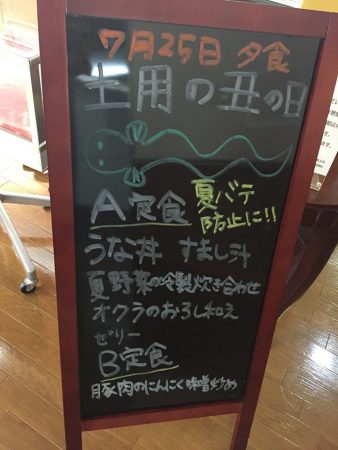 7月25日 夕食
土用の丑の日
A定食 夏バテ
防止に!!
うな丼 すまし汁
夏野菜の冷製炊き合わせ
オクラのおろし和え
ゼリー
B定食
豚肉のにんにく味噌炒め